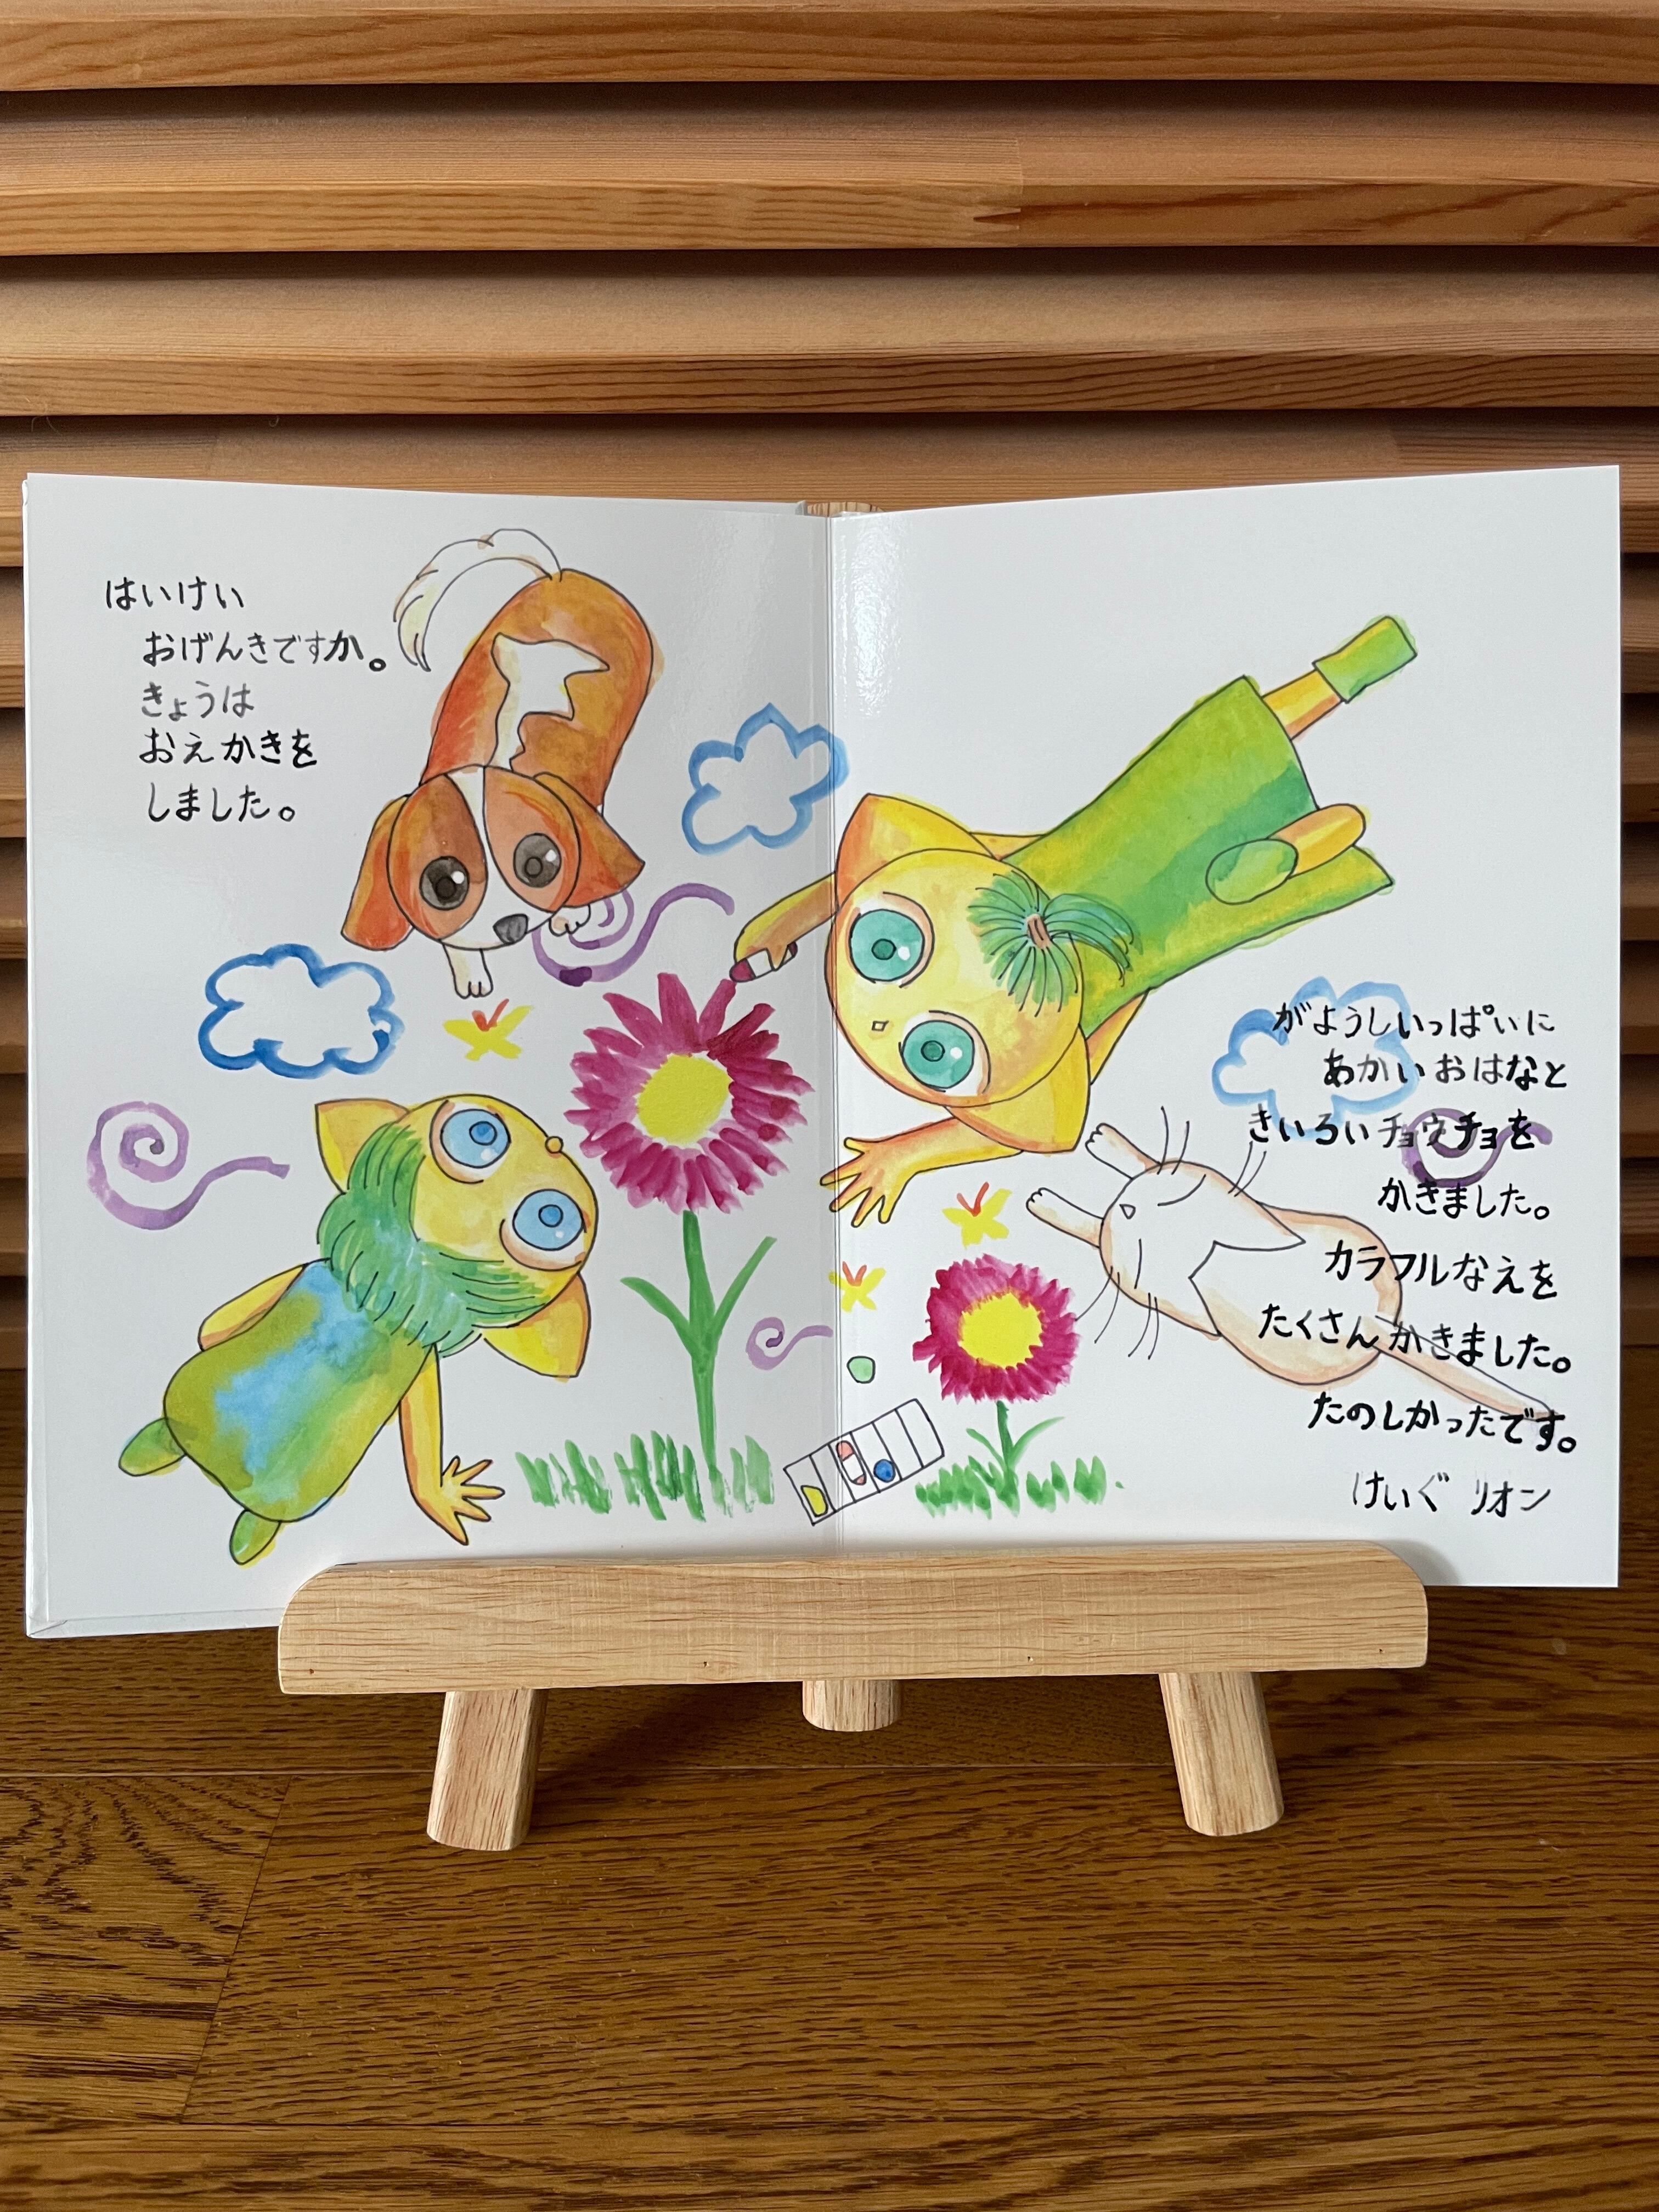 はいけい
おげんきですか。
きょうは
おえかきを
しました。
がようしいっぱいに
あかいおはなと
きいろいチョウチョを
かきました。
カラフルなえを
たくさんかきました。
たのしかったです。
けいぐ リオン